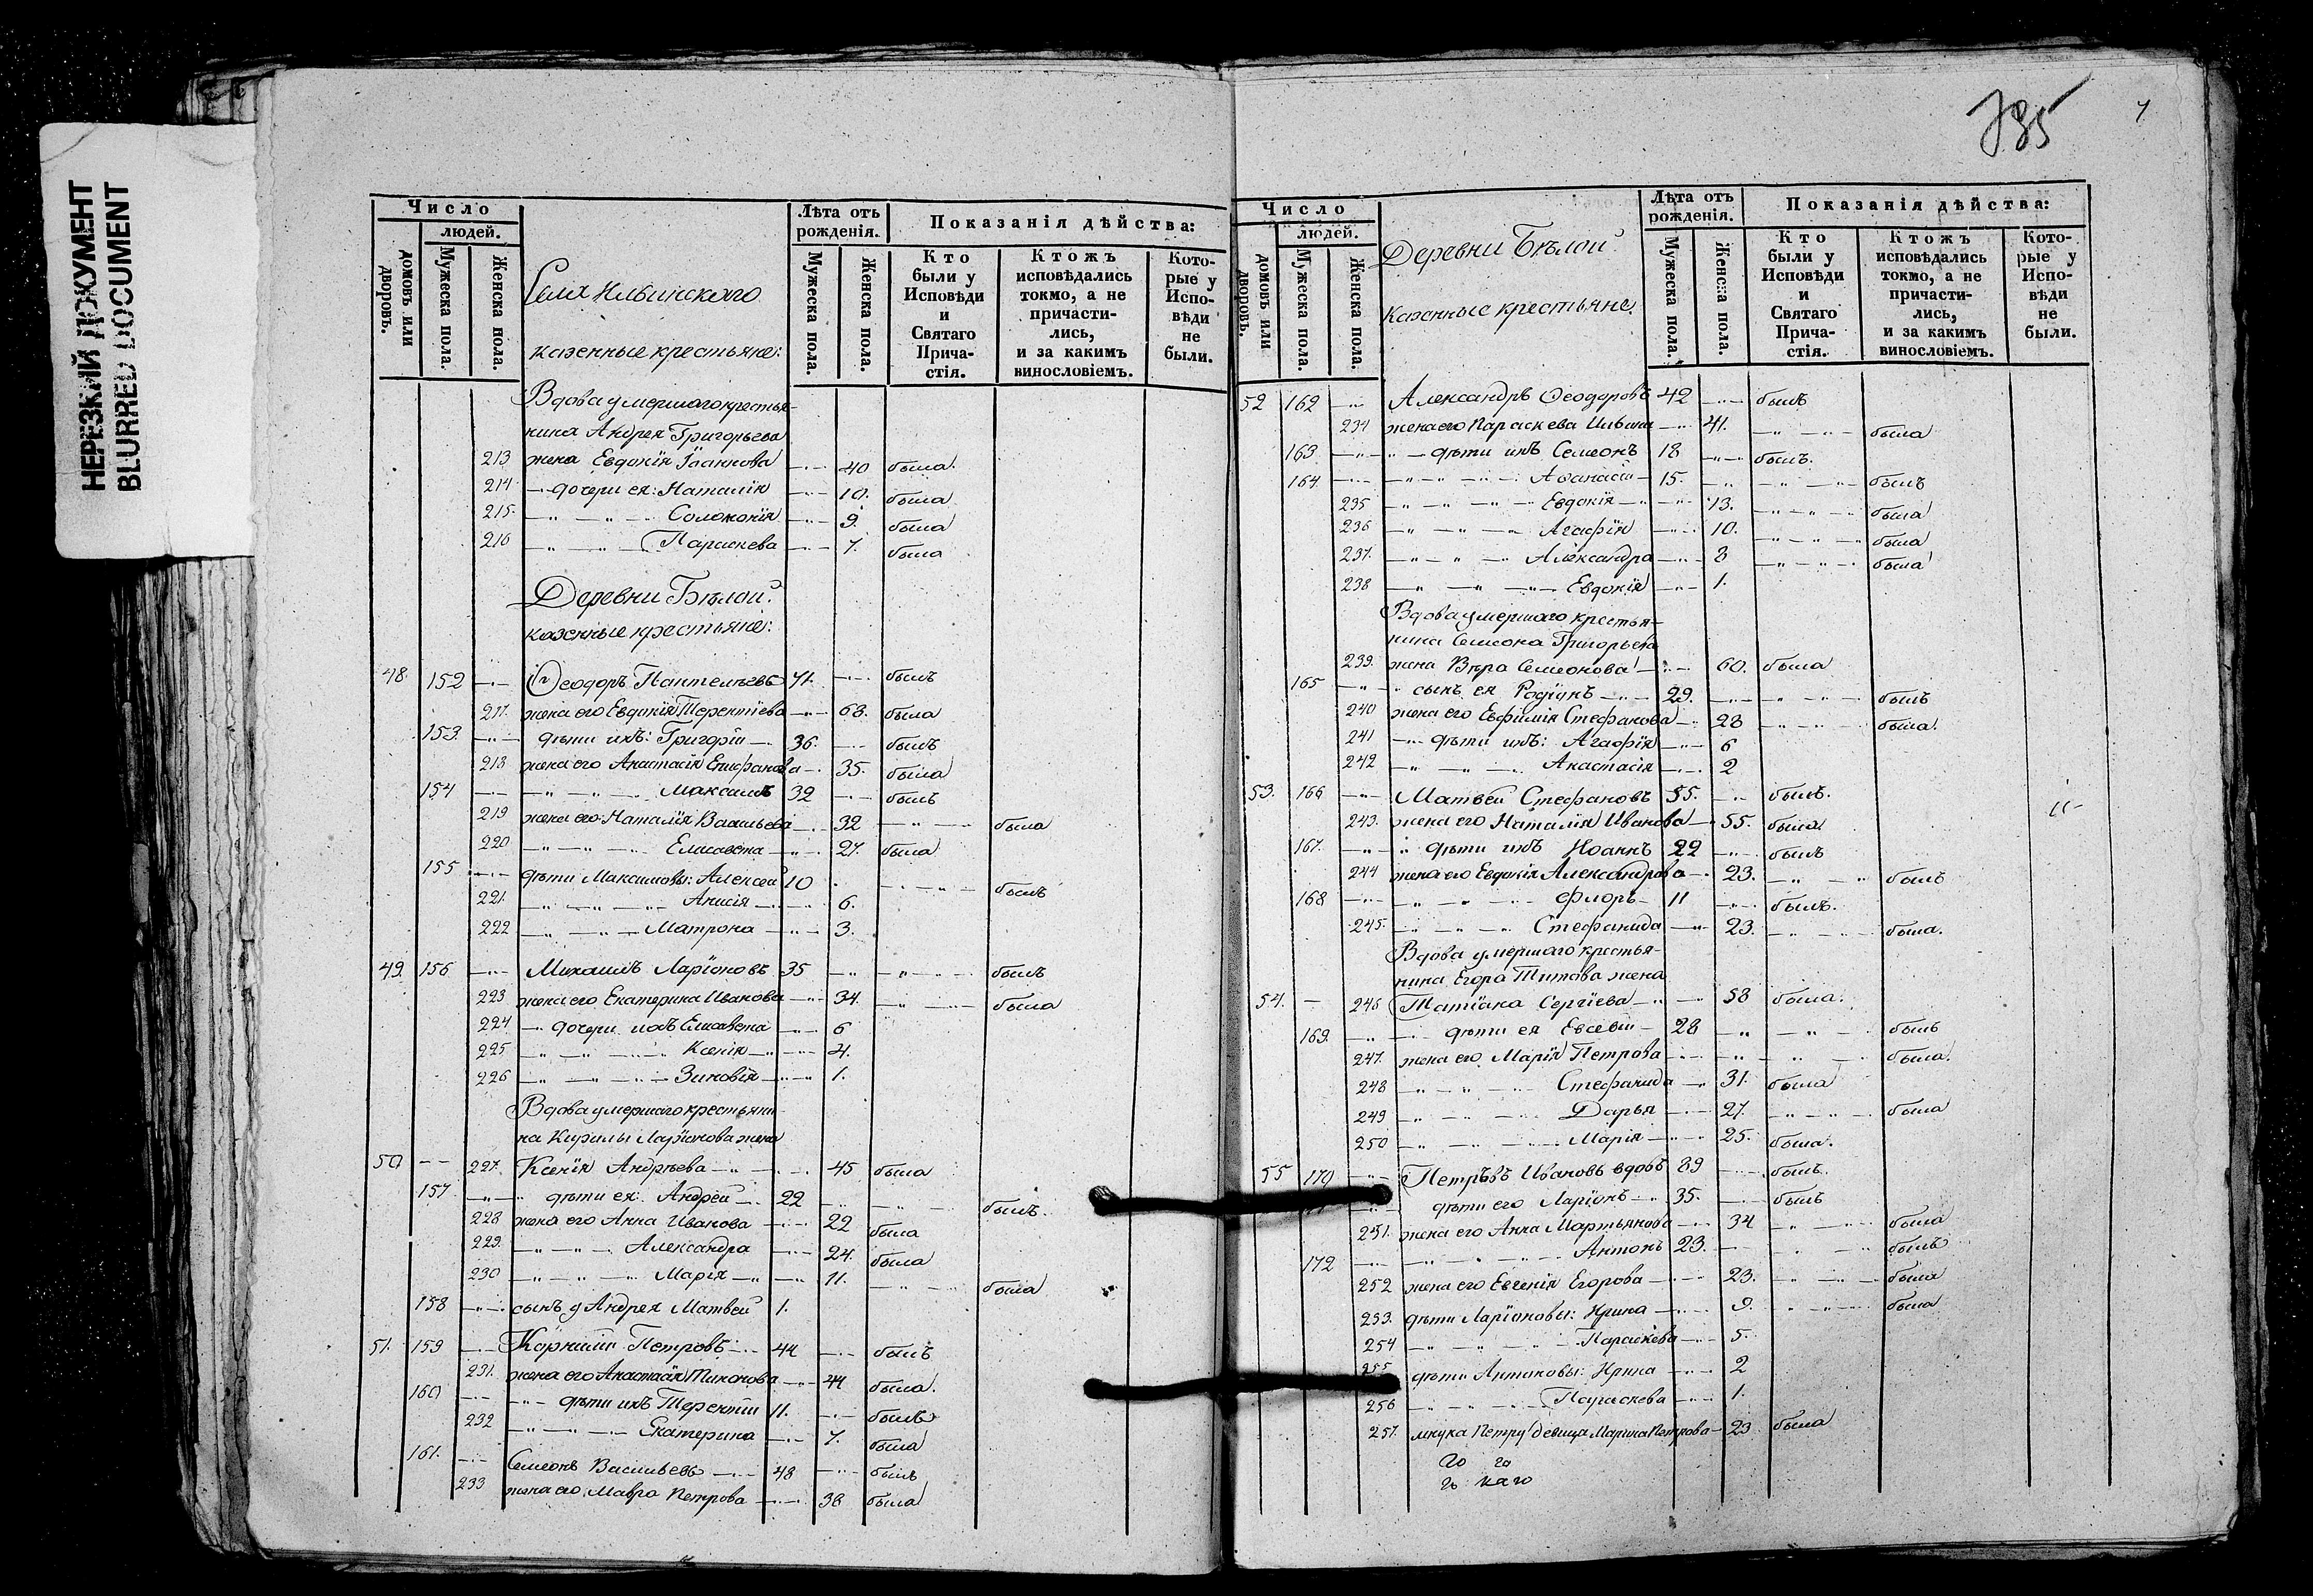 НЕРЕЗКИЙ ДОКУМЕНТ
BLURRED DOCUMENT
Число
людей.
домовъ или дворовъ.
Мужеска пола.
Женска пола.
Села Ильинскаго
казенные крестьяне:
Лѣта отъ рожденія.
Мужеска пола.
Женска пола.
Показанія дѣйства:
Кто были у Исповѣди и Святаго Прича-стія.
Ктожъ исповѣдались токмо, а не причасти-лись, и за какимъ винословіемъ.
Кото-рые у Испо-вѣди не были.
Вдова умершаго крестья-
нина Андрея Григорьева
213 жена Евдокія Іоаннова 40 была.
214 дочери ея: Наталія 10. была
215. Соломонія 9. была
216 Параскева 7. была
Деревни Бѣлой.
казенные крестьяне:
48. 152 Ѳеодоръ Пантелѣевъ 71. былъ
217. жена его Евдокія Терентіева 68. была
153. дѣти ихъ: Григорій 36. былъ
218 жена его Анастасія Епифанова 35. была
154 Максимъ 32 былъ
219 жена его Наталія Васильева 32 была
220 Елисавета 27. была
155 дѣти Максимовы: Алексей 10 былъ
221. Анисія 6.
222 Матрона 3.
49. 156 Михаилъ Ларіоновъ 35 былъ
223 жена его Екатерина Иванова 34. была
224 дочери ихъ Елисавета 6
225 Ксенія 4.
226 Зиновія 1.
Вдова умершаго крестьяни-
на Кирилы Ларіонова жена
50 227. Ксенія Андрѣева 45 была
157 дѣти ея: Андрей 22 былъ.
228 жена его Анна Иванова 22 была
229. Александра 24. была
230 Марія 11. была
158 сынъ у Андрея Матвей 1.
51. 159 Корнилій Петровъ 44 былъ
231. жена его Анастасія Тихонова 44 была.
160 дѣти ихъ Терентій 11. былъ
232 Екатерина 7. была
161. Симеонъ Васильевъ 48 былъ
233 жена его Мавра Петрова 38 была
785
7
Число
людей.
домовъ или дворовъ.
Мужеска пола.
Женска пола.
Деревни Бѣлой
казенные крестьяне.
Лѣта отъ рожденія.
Мужеска пола.
Женска пола.
Показанія дѣйства:
Кто были у Исповѣди и Святаго Прича-стія.
Ктожъ исповѣдались токмо, а не причасти-лись, и за какимъ винословіемъ.
Кото-рые у Испо-вѣди не были.
52 162 Александръ Ѳеодоровъ 42 былъ
234 жена его Параскева Ильина 41. была
163. дѣти ихъ Семеонъ 18 былъ.
164 Аѳанасій 15. былъ
235 Евдокія 13. была
236 Агафія 10. была
237. Александра 8 была
238 Евдокія 1.
Вдова умершаго крестья-
нина Симеона Григорьева
239. жена Вѣра Семеонова 60. была
165 сынъ ея Родіонъ 29. былъ
240 жена его Евфимія Стефанова 28 была.
241 дѣти ихъ: Агафія 6
242 Анастасія 2
53. 166 Матвей Стефановъ 55. былъ.
243. жена его Наталія Иванова 55. была
167. дѣти ихъ Иоаннъ 22 былъ
244 жена его Евдокія Александрова 23. былъ
168 Флоръ 11 былъ.
245. Стефанида 23. была.
Вдова умершаго крестья-
нина Егора Титова жена
54. 246 Татіана Сергіева 58 была.
169. дѣти ея Евсевій 28 былъ
247. жена его Марія Петрова была.
248 Стефанида 31. была
249 Дарья 27. была
250 Марія 25. была.
55 170 Петръ Ивановъ вдовъ 89 былъ.
дѣти его Ларіонъ 35. былъ
251. жена его Анна Мартьянова 34 была
172 Антонъ 23. былъ
252 жена его Евгенія Егорова 23. была
253. дѣти Ларіоновы: Ирина 9. была
254 Параскева 5.
255 дѣти Антоновы: Ирина 2
256 Параскева 1.
257. внука Петру девица Марина Петрова 23 была